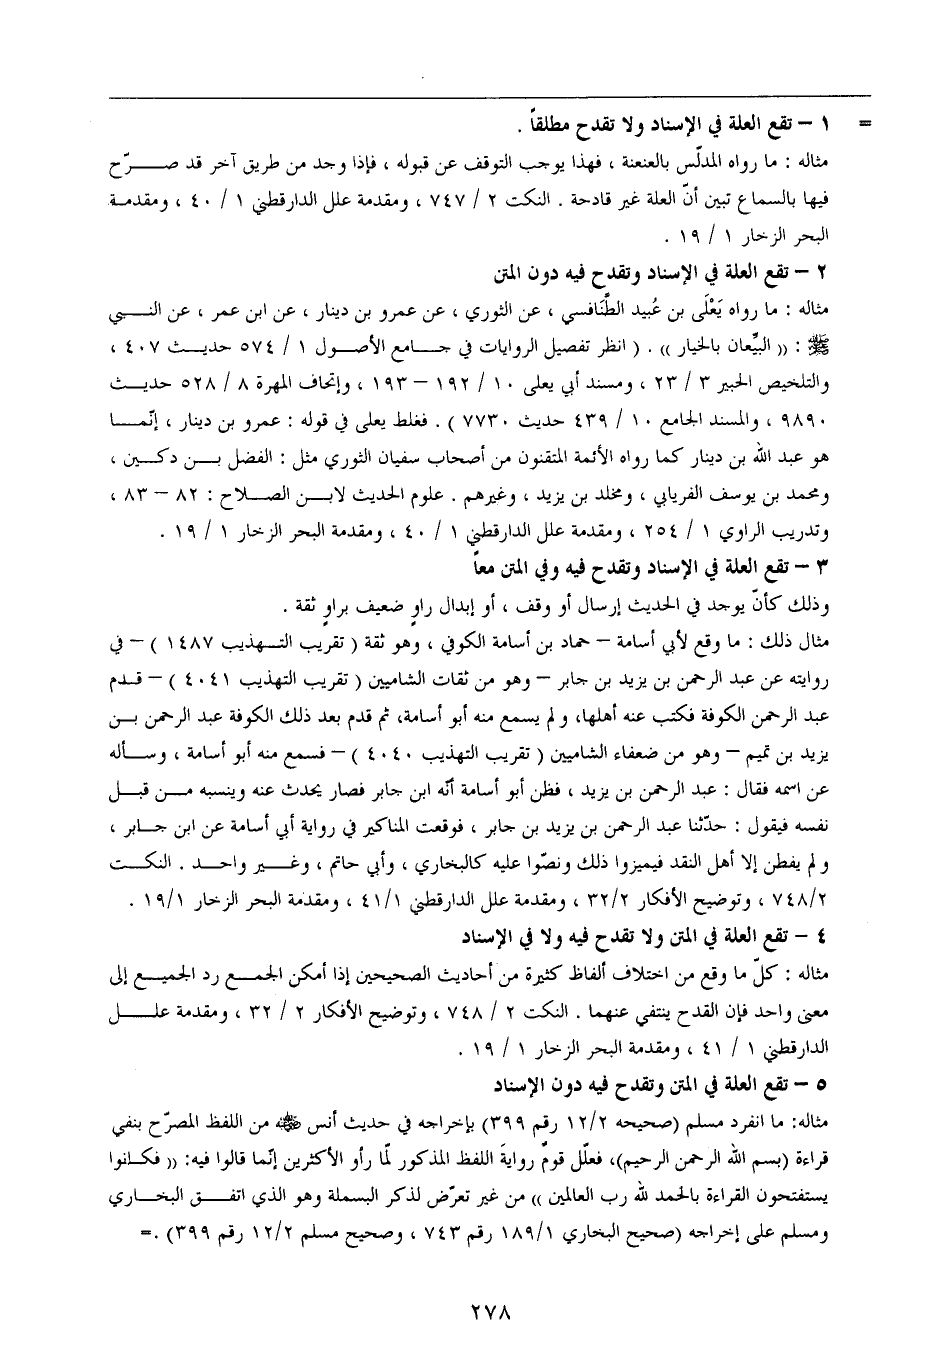 = ١ – تقع العلة في الإسناد ولا تقدح مطلقاً .
مثاله : ما رواه المدلّس بالعنعنة ، فهذا يوجب التوقف عن قبوله ، فإذا وجد من طريق آخر قد صـــرّح
فيها بالسماع تبين أنّ العلة غير قادحة . النكت ٢ / ٧٤٧ ، ومقدمة علل الدارقطني ١ / ٤٠ ، ومقدمـة
البحر الزخار ١ / ١٩ .
٢ – تقع العلة في الإسناد وتقدح فيه دون المتن
مثاله : ما رواه يَعْلَى بن عُبيد الطَّنَافسي ، عن الثوري ، عن عمرو بن دينار ، عن ابن عمر ، عن النـــبي
ﷺ : (( البيِّعان بالخيار )) . ( انظر تفصيل الروايات في جـامع الأصـول ١ / ٥٧٤ حديـث ٤٠٧ ،
والتلخيص الحبير ٣ / ٢٣ ، ومسند أبي يعلى ١٠ / ١٩٢ – ١٩٣ ، وإتحاف المهرة ٨ / ٥٢٨ حديـث
٩٨٩٠ ، والمسند الجامع ١٠ / ٤٣٩ حديث ٧٧٣٠ ) . فغلط يعلى في قوله : عمرو بن دينار ، إنّمـــا
هو عبد الله بن دينار كما رواه الأئمة المتقنون من أصحاب سفيان الثوري مثل : الفضل بـــن دكـين ،
ومحمد بن يوسف الفريابي ، ومخلد بن يزيد ، وغيرهم . علوم الحديث لابـــن الصـلاح : ٨٢ – ٨٣ ،
وتدريب الراوي ١ / ٢٥٤ ، ومقدمة علل الدارقطني ١ / ٤٠ ، ومقدمة البحر الزخار ١ / ١٩ .
٣ – تقع العلة في الإسناد وتقدح فيه وفي المتن معاً
وذلك كأنّ يوجد في الحديث إرسال أو وقف ، أو إبدال راوٍ ضعيف براوٍ ثقة .
مثال ذلك : ما وقع لأبي أسامة – حماد بن أسامة الكوفي ، وهو ثقة ( تقريب التـهذيب ١٤٨٧ ) – في
روايته عن عبد الرحمن بن يزيد بن جابر – وهو من ثقات الشاميين ( تقريب التهذيب ٤٠٤١ ) – قـدم
عبد الرحمن الكوفة فكتب عنه أهلها، ولم يسمع منه أبو أسامة، ثم قدم بعد ذلك الكوفة عبد الرحمن بـن
يزيد بن تميم – وهو من ضعفاء الشاميين ( تقريب التهذيب ٤٠٤٠ ) – فسمع منه أبو أسامة ، وسـأله
عن اسمه فقال : عبد الرحمن بن يزيد ، فظن أبو أسامة أنّه ابن جابر فصار يحدث عنه وينسبه مـــن قبـل
نفسه فيقول : حدّثنا عبد الرحمن بن يزيد بن جابر ، فوقعت المناكير في رواية أبي أسامة عن ابن جـابر ،
ولم يفطن إلا أهل النقد فيميزوا ذلك ونصّوا عليه كالبخاري ، وأبي حاتم ، وغـــير واحـد . النكـت
٧٤٨/٢ ، وتوضيح الأفكار ٣٢/٢ ، ومقدمة علل الدارقطني ٤١/١ ، ومقدمة البحر الزخار ١٩/١ .
٤ – تقع العلة في المتن ولا تقدح فيه ولا في الإسناد
مثاله : كلّ ما وقع من اختلاف ألفاظ كثيرة من أحاديث الصحيحين إذا أمكن الجمـع رد الجميـع إلى
معنى واحد فإن القدح ينتفي عنهما . النكت ٢ / ٧٤٨ ، وتوضيح الأفكار ٢ / ٣٢ ، ومقدمة علـــل
الدارقطني ١ / ٤١ ، ومقدمة البحر الزخار ١ / ١٩ .
٥ – تقع العلة في المتن وتقدح فيه دون الإسناد
مثاله: ما انفرد مسلم (صحيحه ١٢/٢ رقم ٣٩٩) بإخراجه في حديث أنس ﷺ من اللفظ المصرّح بنفي
قراءة (بسم الله الرحمن الرحيم)، فعلّل قومٌ روايةَ اللفظ المذكور لمّا رأو الأكثرين إنّما قالوا فيه: (( فكـانوا
يستفتحون القراءة بالحمد لله رب العالمين )) من غير تعرّض لذكر البسملة وهو الذي اتفـــق البخـــاري
ومسلم على إخراجه (صحيح البخاري ١٨٩/١ رقم ٧٤٣ ، وصحيح مسلم ١٢/٢ رقم ٣٩٩) .=
٢٧٨